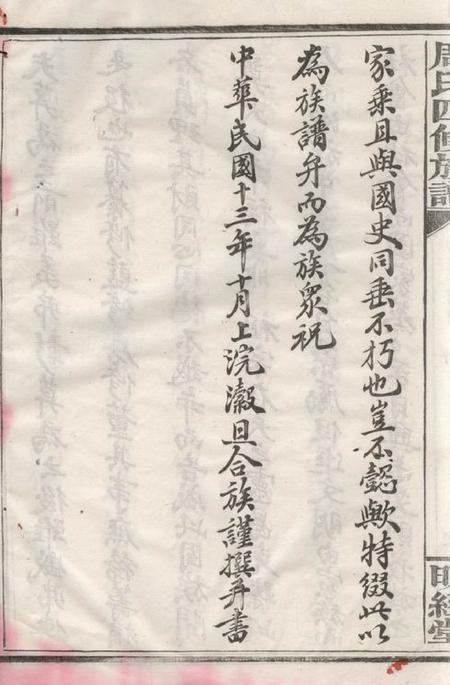 周氏四修族譜
明經堂
家乘且與國史同垂不朽也豈不懿歟特綴此以
為族譜弁而為族眾祝
中華民國十三年十月上浣瀔旦合族謹撰并書